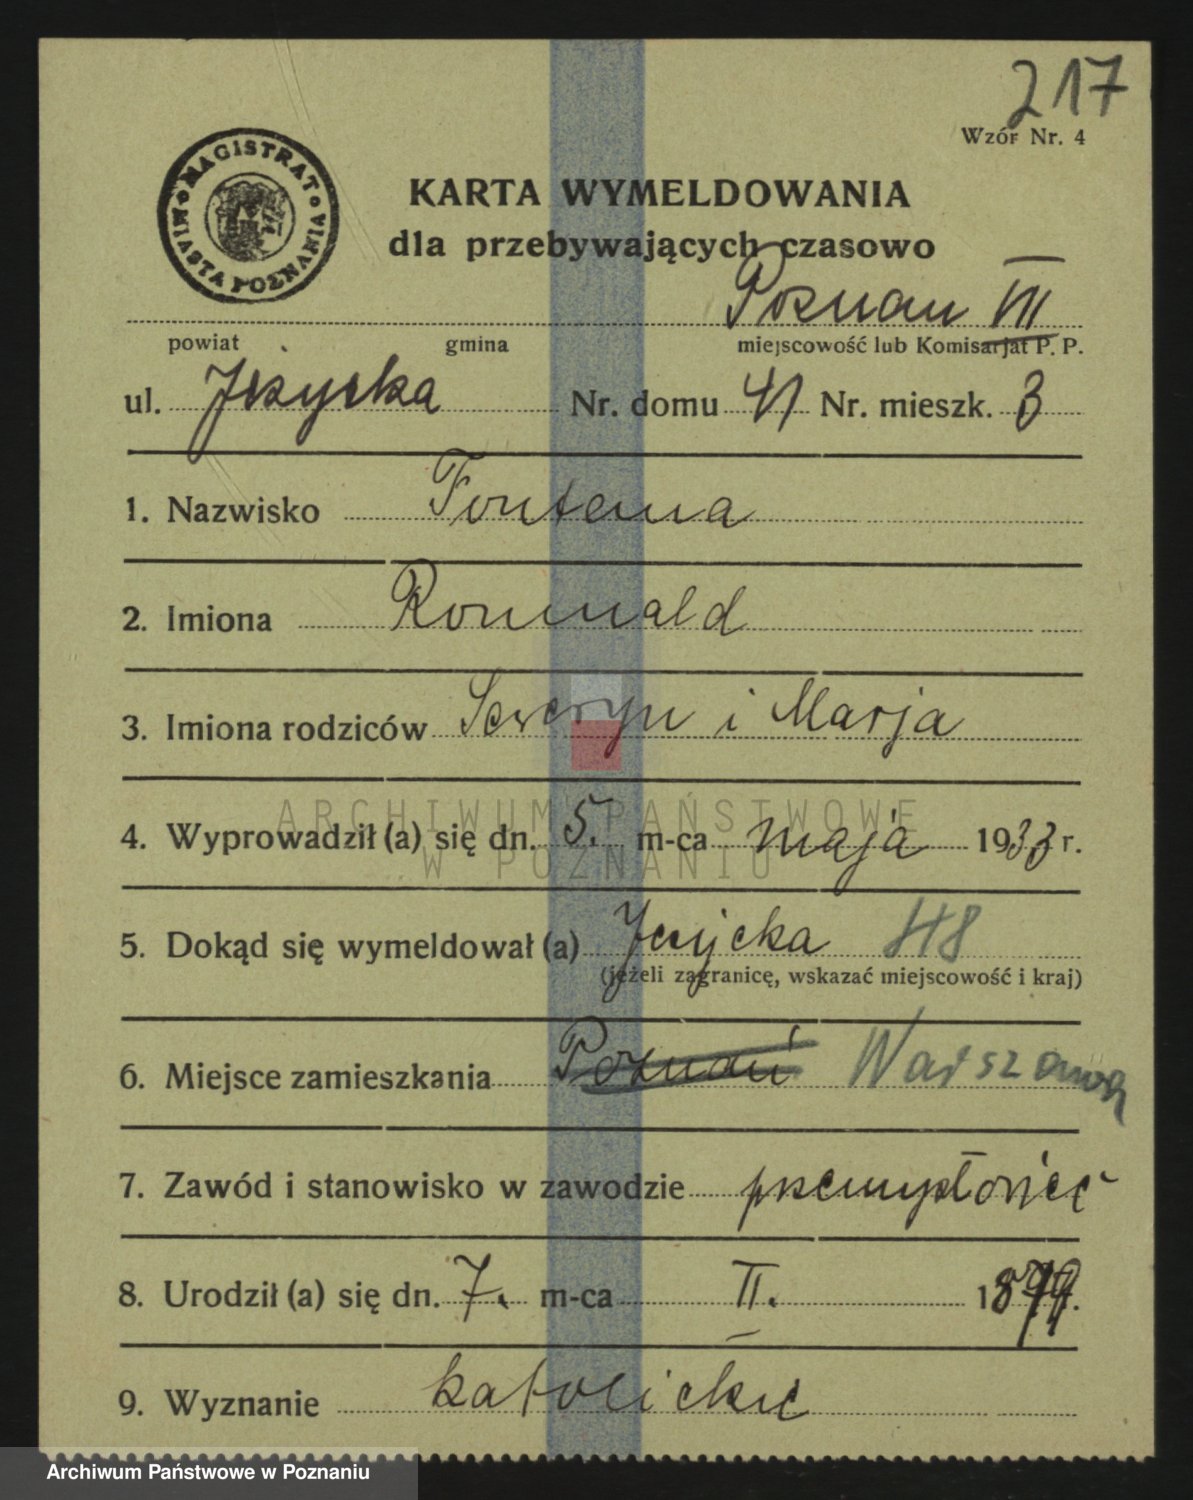 217
Wzór Nr. 4
MAGISTRAT MIASTA POZNANIA
KARTA WYMELDOWANIA
dla przebywających czasowo
Poznan VII
powiat gmina miejscowość lub Komisarjat P. P.
ul. Jeżycka Nr. domu 41 Nr. mieszk. 3
1. Nazwisko Fontana
2. Imiona Romuald
3. Imiona rodziców Seweryn i Marja
ARCHIWUM PAŃSTWOWE
4. Wyprowadził (a) się dn. 5. m-ca maja 1933 r.
W POZNANIU
5. Dokąd się wymeldował (a) Jeżycka 48
(jeżeli zagranicę, wskazać miejscowość i kraj)
6. Miejsce zamieszkania Poznań Warszawa
7. Zawód i stanowisko w zawodzie przemysłowiec
8. Urodził (a) się dn. 7. m-ca II.
9. Wyznanie katolickie
Archiwum Państwowe w Poznaniu